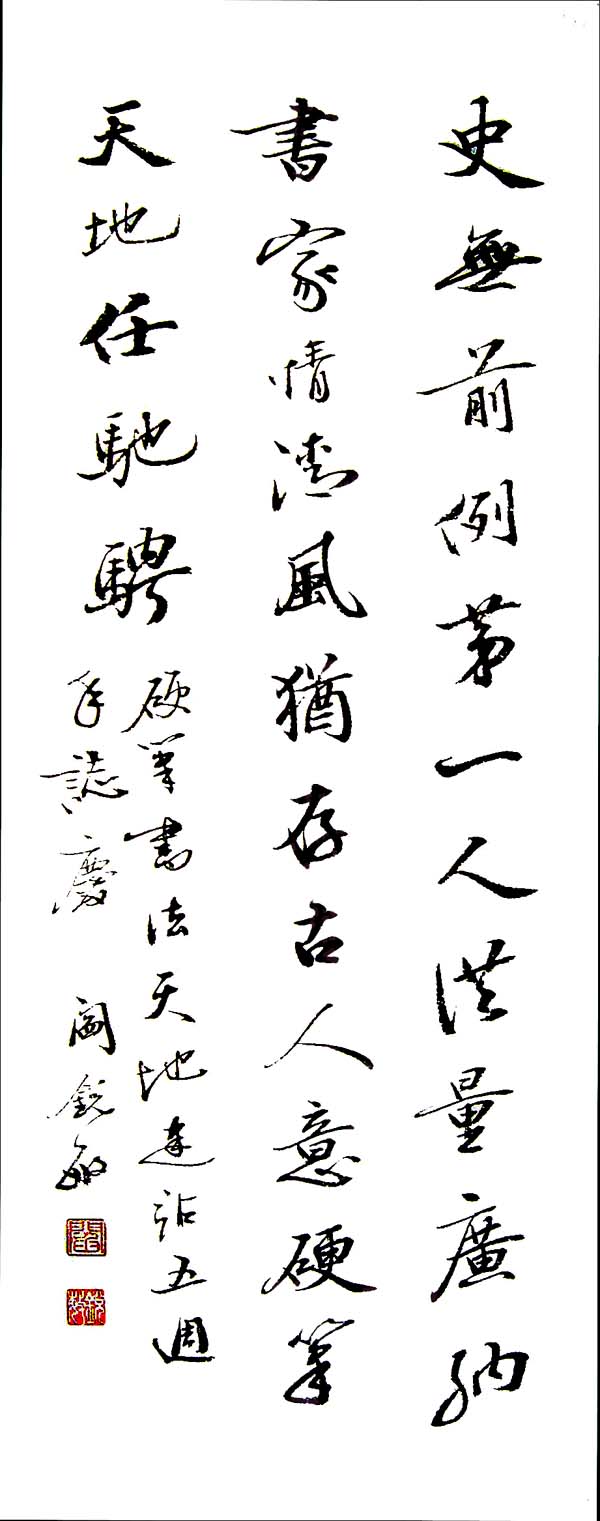 史無前例第一人洪量廣納
書家情清風猶存古人意硬筆
天地任馳騁
硬筆書法天地建站五週
年誌慶 閻銳敏